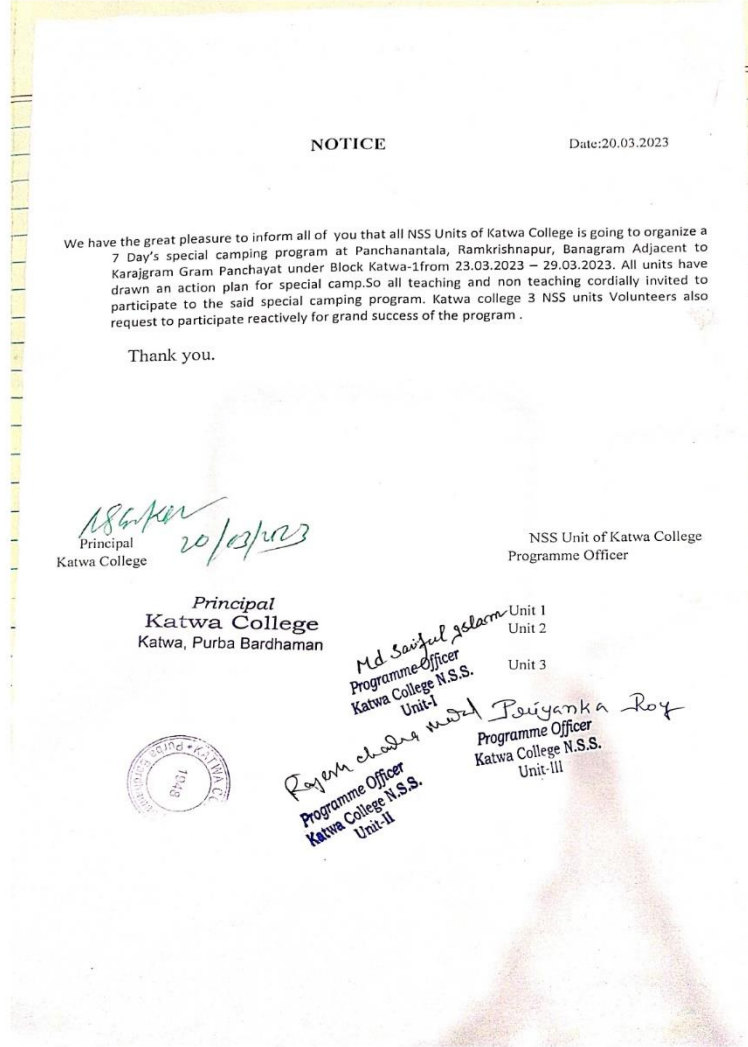 NOTICE Date:20.03.2023
We have the great pleasure to inform all of you that all NSS Units of Katwa College is going to organize a
7 Day's special camping program at Panchanantala, Ramkrishnapur, Banagram Adjacent to
Karajgram Gram Panchayat under Block Katwa-1from 23.03.2023 – 29.03.2023. All units have
drawn an action plan for special camp.So all teaching and non teaching cordially invited to
participate to the said special camping program. Katwa college 3 NSS units Volunteers also
request to participate reactively for grand success of the program .
Thank you.
20/03/2023
Principal
Katwa College
NSS Unit of Katwa College
Programme Officer
Principal
Katwa College
Katwa, Purba Bardhaman
Unit 1
Unit 2
Unit 3
Md Saiful Islam
Programme Officer
Katwa College N.S.S.
Unit-I
Priyanka Roy
Programme Officer
Katwa College N.S.S.
Unit-III
Rajesh
Programme Officer
Katwa College N.S.S.
Unit-II
KATWA
Purba
1948